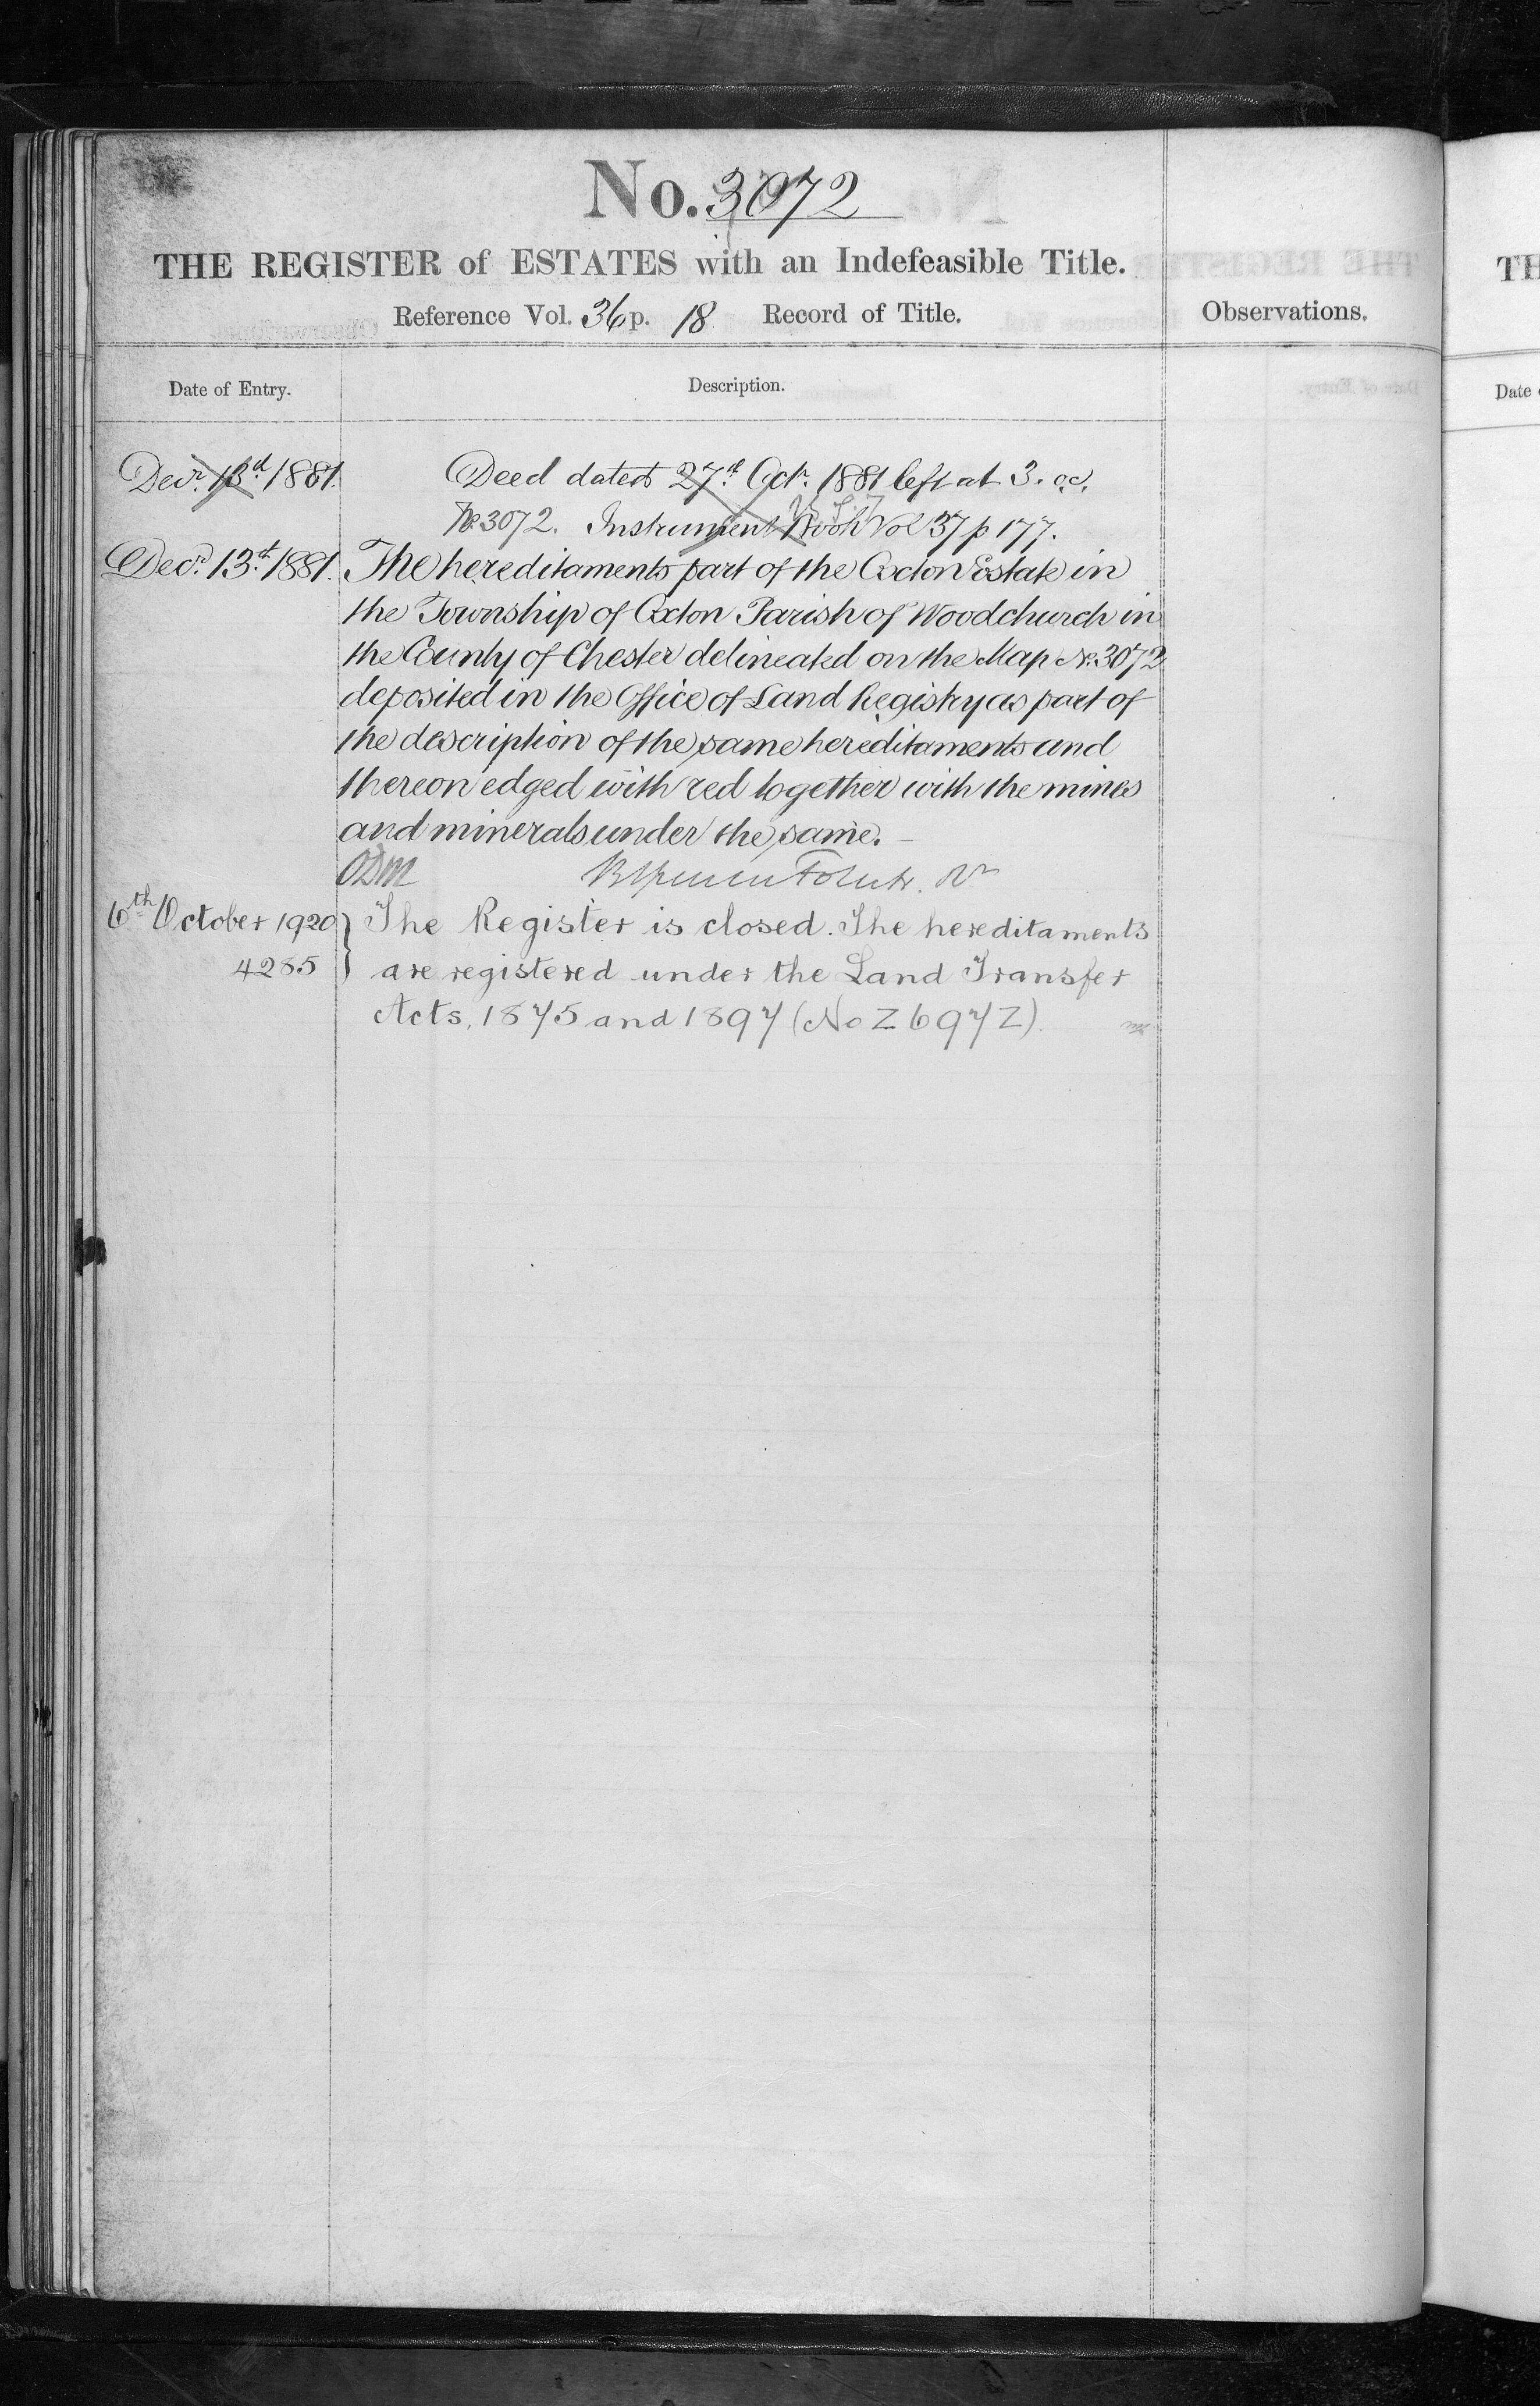 No. 3072
THE REGISTER of ESTATES with an Indefeasible Title.
Reference Vol. 36 p. 18 Record of Title.
Observations.
Date of Entry.
Description.
Decr. 13th 1881. Deed dated 27th Octr. 1881 left at 3. oc.
No. 3072. Instrument Book Vol 37 p 177.
Decr. 13th 1881. The hereditaments part of the Oxton Estate in
the Township of Oxton Parish of Woodchurch in
the County of Chester delineated on the Map No. 3072
deposited in the Office of Land Registry as part of
the description of the same hereditaments and
thereon edged with red together with the mines
and minerals under the same.
6th October 1920 } The Register is closed. The hereditaments
4285 } are registered under the Land Transfer
Acts, 1875 and 1897 (No Z 697Z).
TH
Date